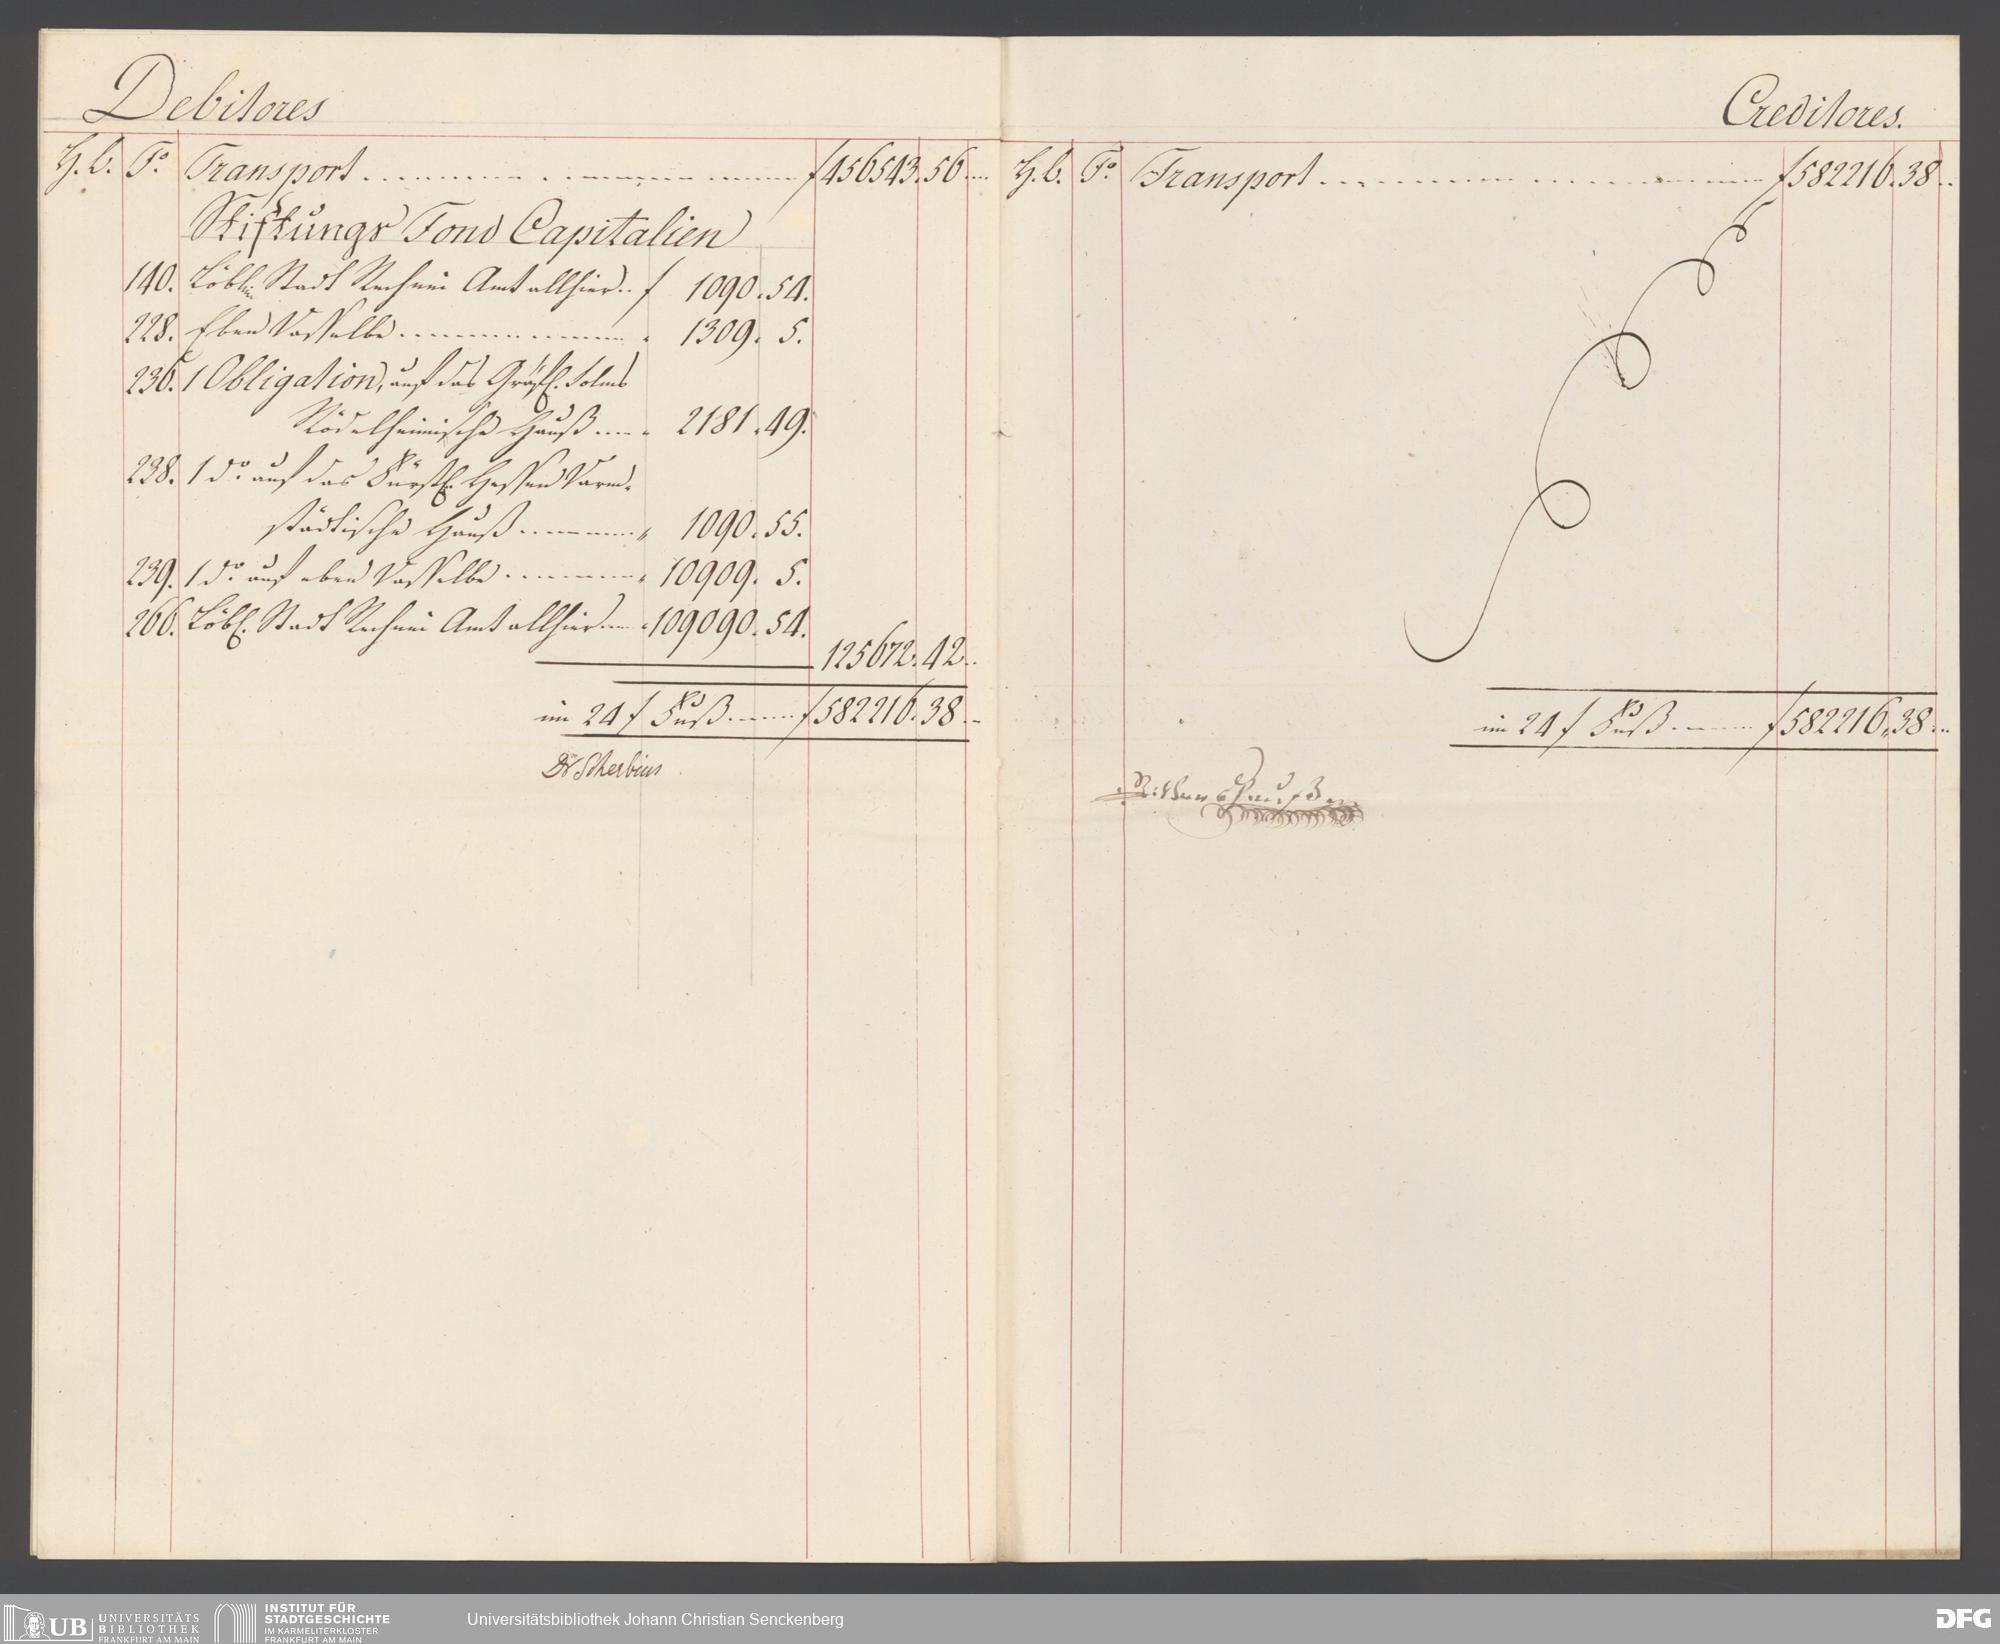 Debitores
H. b. Fº. Transport f 456543. 56.
Stiftungs Fond Capitalien
140. Löbl. Stadt Rechnei Amt allhier f 1090. 54.
228. Eben Dasselbe " 1309. 5.
236. 1 Obligation, auf das Gräfl. Solms
Rödelheimische Hauß " 2181. 49.
238. 1 dº. auf das Fürstl. Hessen Darm-
städtische Hauß " 1090. 55.
239. 1 dº. auf eben Dasselbe " 10909. 5.
266. Löbl. Stadt Rechnei Amt allhier " 109090. 54.
125672. 42.
im 24 f Fuß f 582216. 38.
Dr Scherbius
Creditores.
H. b. Fº. Transport f 582216. 38.
im 24 f Fuß f 582216. 38.
UB UNIVERSITÄTS
BIBLIOTHEK
FRANKFURT AM MAIN
INSTITUT FÜR
STADTGESCHICHTE
IM KARMELITERKLOSTER
FRANKFURT AM MAIN
Universitätsbibliothek Johann Christian Senckenberg
DFG